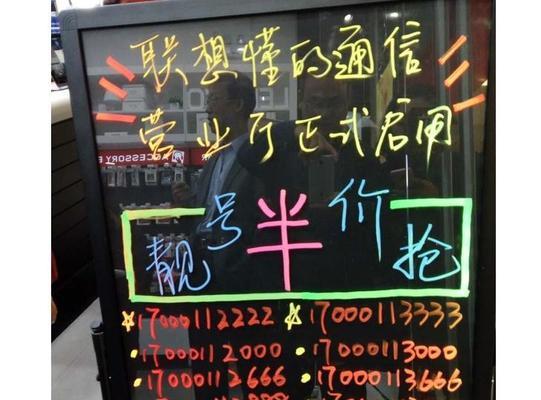 联想懂的通信
营业厅正式启用
靓号半价抢
☆17000112222 ☆17000113333
·17000112000 ·17000113000
·17000112666 ·17000113666
ACCESSORY